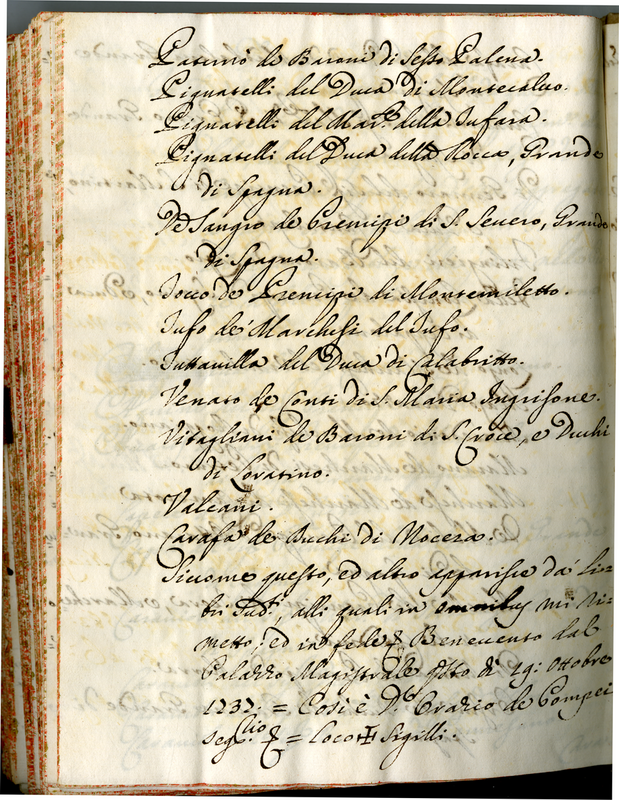 Paternò de Baroni di Sesto Palena.
Pignatelli del Duca di Montecalvo.
Pignatelli del Mar.e della Jufara.
Pignatelli del Duca della Rocca, Grande
di Spagna.
De Sangro de Prencipi di S. Severo, Grande
di Spagna.
Tocco de Prencipi di Montemiletto.
Tufo dei Marchesi del Tufo.
Tuttavilla del Duca di Calabritto.
Venato de Conti di S. Maria Ingrisone.
Vitagliani de Baroni di S. Croce, e Duchi
di Loratino.
Valcani.
Carafa de Duchi di Nocera.
Siccome questo, ed altro apparisce da' Li-
bri sud.i, alli quali in omnibus mi ri-
metto; ed in fede & Benevento dal
Palazzo Magistrale q̃sto dì 29: Ottobre
1737. = Così è D. Orazio de Pompei
Seg.rio & = Loco ✠ Sigilli.